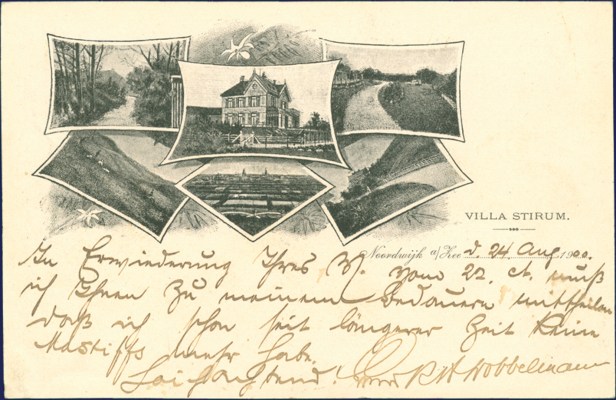 VILLA STIRUM.
Noordwijk a/Zee d. 24 Aug. 1900.
In Erwiederung Ihres vom 22. ct. muß
ich Ihnen zu meinem Bedauern mittheilen
daß ich schon seit längerer Zeit keine
Mastiffs mehr habe.
Hobbelmann